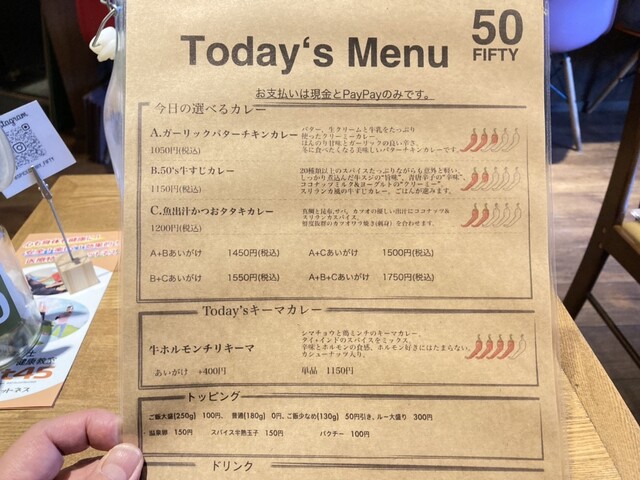 Today's Menu
50
FIFTY
お支払いは現金とPayPayのみです。
今日の選べるカレー
A.ガーリックバターチキンカレー
1050円(税込)
バター、生クリームと牛乳をたっぷり
使ったクリーミーカレー。
ほんのり甘味とガーリックの良い辛さ、
冬に食べたくなる美味しいバターチキンカレーです。
B.50's牛すじカレー
1150円(税込)
20種類以上のスパイスたっぷりながらも意外と軽い、
しっかり煮込んだ牛スジの"旨味"、青唐辛子の"辛味"、
ココナッツミルク&ヨーグルトの"クリーミー"。
スリランカ風の牛すじカレー。ごはんが進みます。
C.魚出汁かつおタタキカレー
1200円(税込)
真鯛と昆布、サバ、カツオの優しい出汁にココナッツ&
スリランカスパイス。
鮮度抜群のカツオワラ焼き(刺身)を合わせます。
A+Bあいがけ 1450円(税込) A+Cあいがけ 1500円(税込)
B+Cあいがけ 1550円(税込) A+B+Cあいがけ 1750円(税込)
Today'sキーマカレー
牛ホルモンチリキーマ
シマチョウと鶏ミンチのキーマカレー。
タイ+インドのスパイスをミックス。
辛味とホルモンの食感、ホルモン好きにはたまらない。
カシューナッツ入り。
あいがけ +400円 単品 1150円
トッピング
ご飯大盛(250g) 100円、 普通(180g) 0円、ご飯少なめ(130g) 50円引き、ルー大盛り 300円
温泉卵 150円 スパイス半熟玉子 150円 パクチー 100円
ドリンク